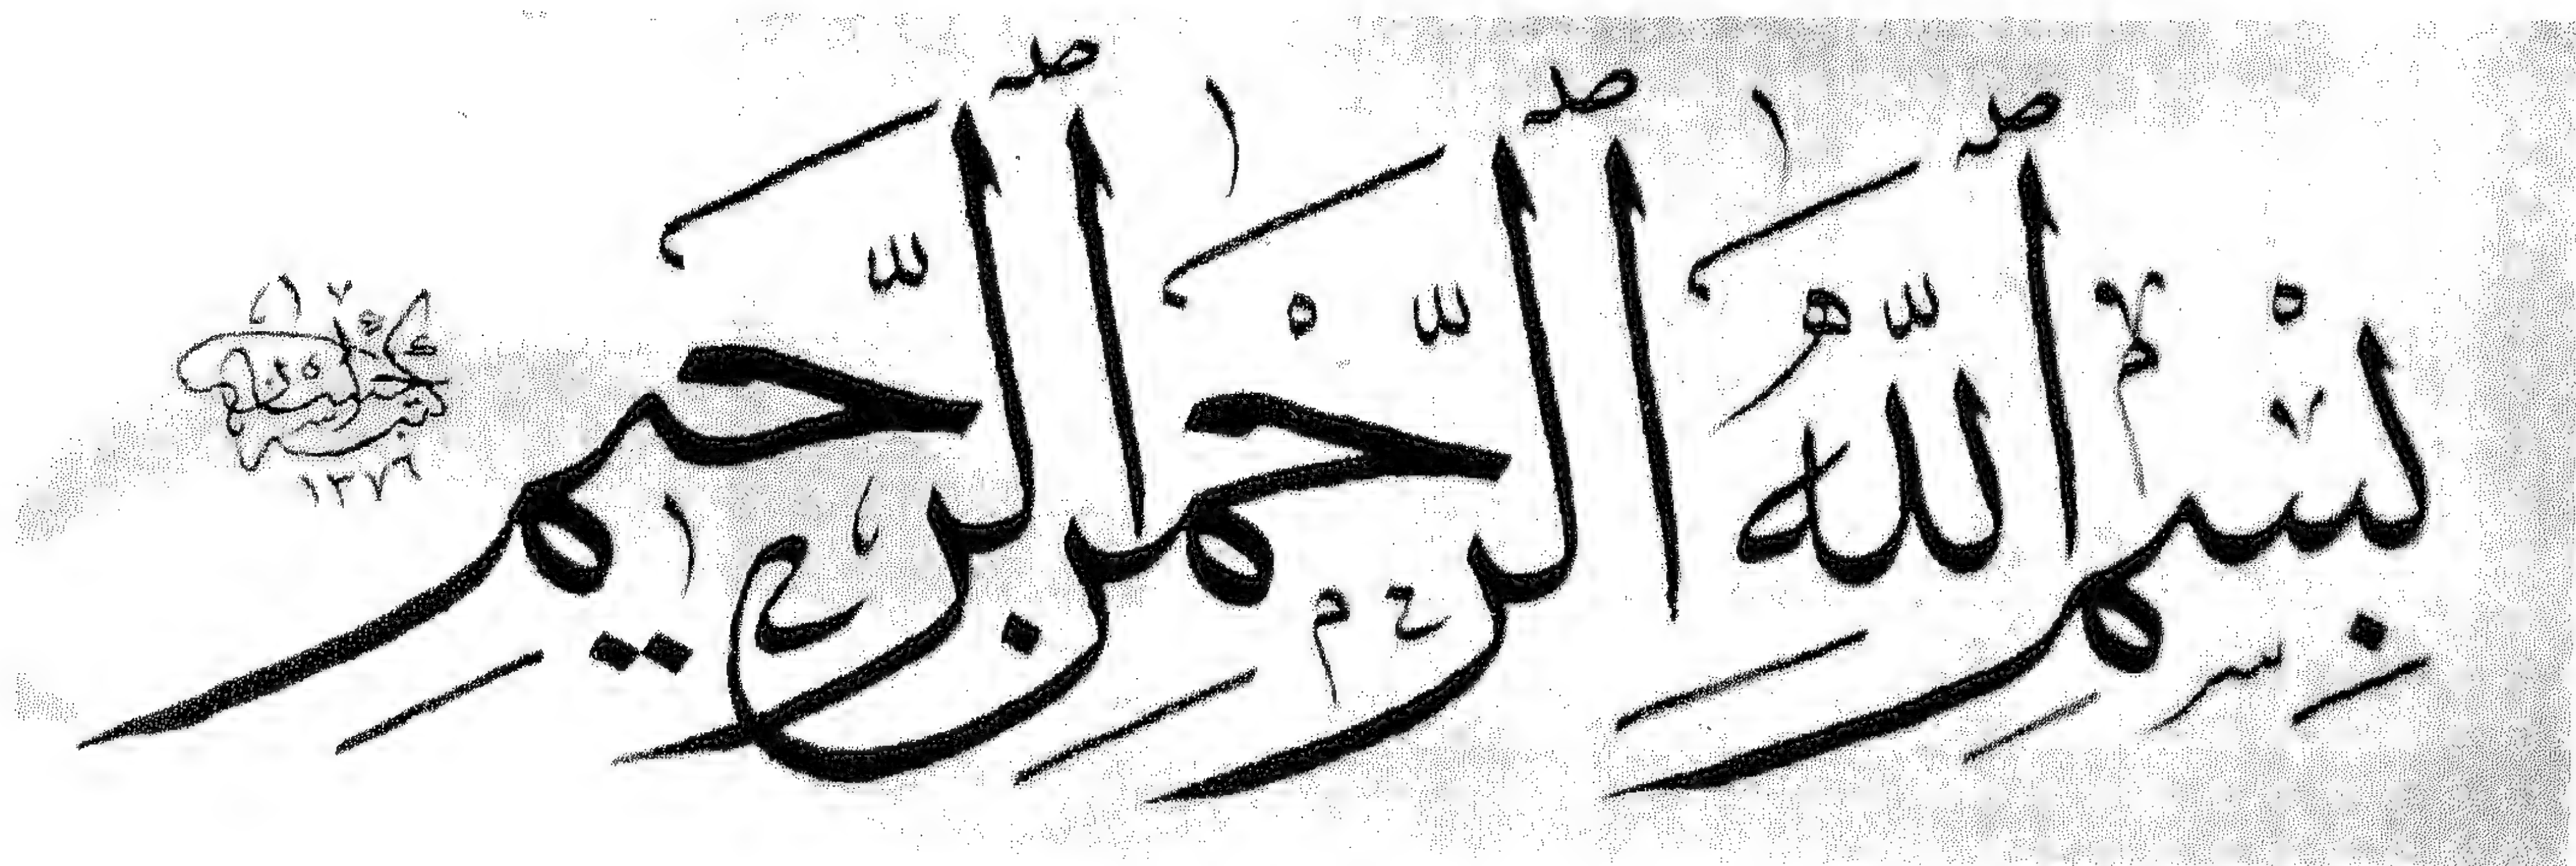 بِسْمِ اللَّهِ الرَّحْمَٰنِ الرَّحِيمِ
١٣٧٩